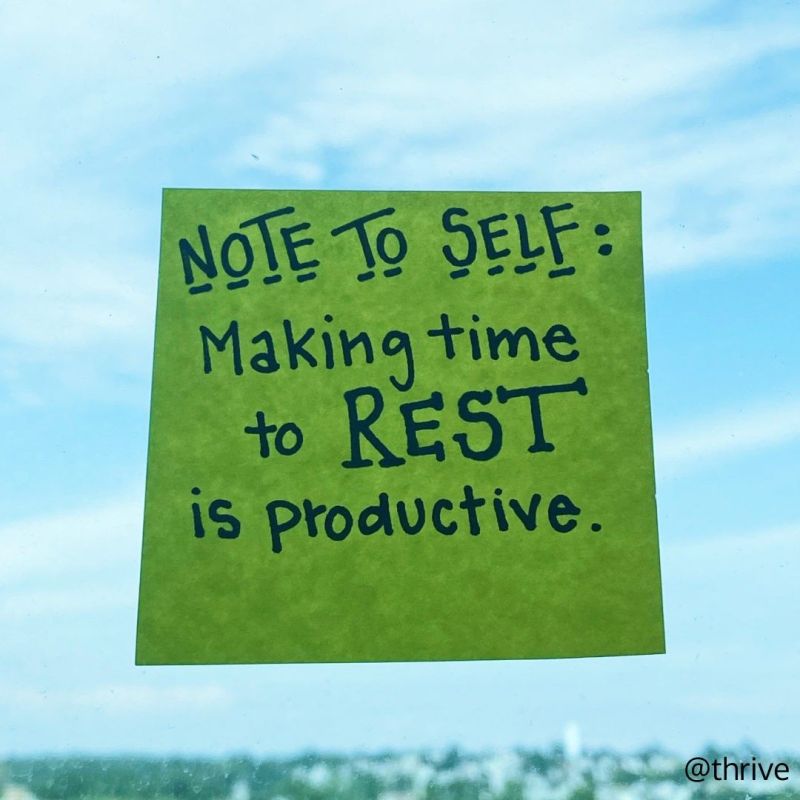 NOTE TO SELF:
Making time
to REST
is productive.
@thrive